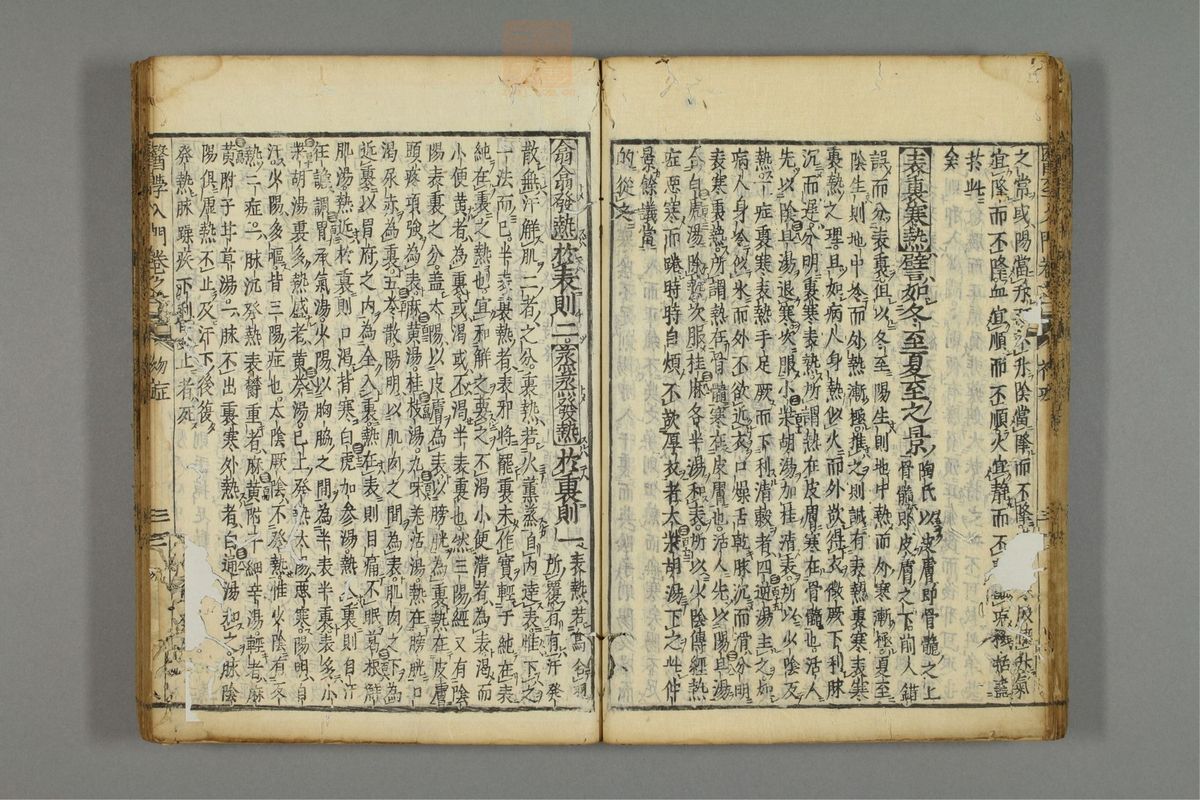 之常或陽當升而不升陰當降而不降
宜降而不降血宜順而不順火宜靜而不
於此
矣
表裏寒熱譬如冬至夏至之景 陶氏以皮膚即骨髓之上
骨髓即皮膚之下前人錯
誤而分表裏但以冬至陽生則地中熱而外寒漸極夏至
陰生則地中冷而外熱漸極推之則誠有表熱裏寒表寒
裏熱之理且如病人身熱似火而外欲得衣微厥下利脉
沉而遲分明裏寒表熱所謂熱在皮膚寒在骨髓也活人
先以陰旦湯退寒次服小柴胡湯加桂清表所以少陰反
熱一症裏寒表熱手足厥而下利清穀者四逆湯主之如
病人身冷似氷而外不欲近衣口燥舌乾脉沉而滑分明
表寒裏熱所謂熱在骨髓寒在皮膚也活人先以陽旦湯
合白虎湯除熱次服桂麻各半湯和表所以少陰傳經熱
症惡寒而踡時時自煩不欲厚衣者大柴胡湯下之此仲
景餘議當
的從之
翕翕發熱於表則二蒸蒸發熱於裏則一 表熱若翕
所覆者有汗發
散無汗解肌二者之分裏熱若火薰蒸自內達惟下之
一法而已半表裏熱者表邪將罷裏未作實輕于純在表
純在裏之熱也宜和解之裏不渴小便清者為表渴而
小便黄者為裏或渴或不渴半表裏也然三陽經又有陰
陽表裏之分盖太陽以皮膚為表以膀胱為裏熱在皮膚
頭疼項強為表麻黄湯桂枝湯九味羌活湯熱在膀胱口
渴尿赤為裏五苓散陽明以肌肉之間為表肌肉之下為
近裏以胃府之內為全入裏熱在表則目痛不眠葛根解
肌湯熱近於裏則口渴背寒白虎加参湯熱入裏則自汗
狂譫調胃承氣湯少陽以胸脇之間為半表半裏表多小
柴胡湯裏多熱盛者黄芩湯已上發熱太陽惡寒陽明自
汗少陽多嘔皆三陽症也太陰厥陰不發熱惟少陰有發
熱二症一脉沉發熱表欝重者麻黄附子細辛湯輕者麻
黄附子甘草湯一脉不出裏寒外熱者白通湯和之脉陰
陽俱虛熱不止及汗下後復
發熱脉躁疾下利不止者死
醫學入門卷之 傷寒